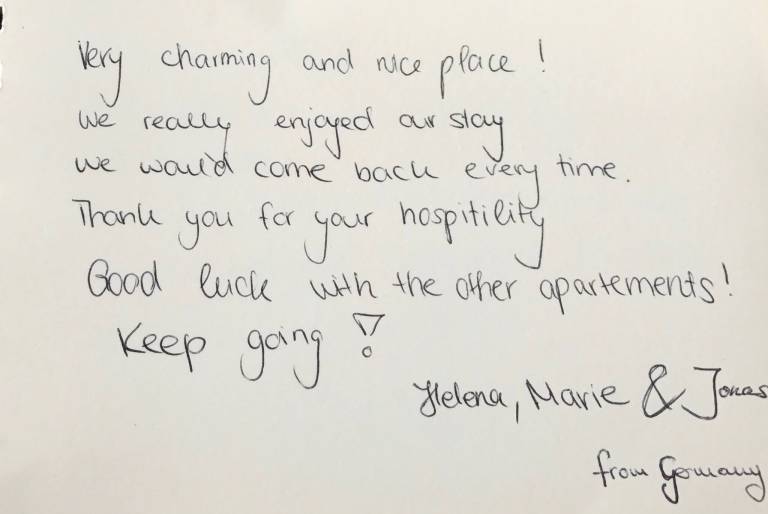 Very charming and nice place!
We really enjoyed our stay
We would come back every time.
Thank you for your hospitility
Good luck with the other apartements!
Keep going!
Helena, Marie & Jonas
from Germany